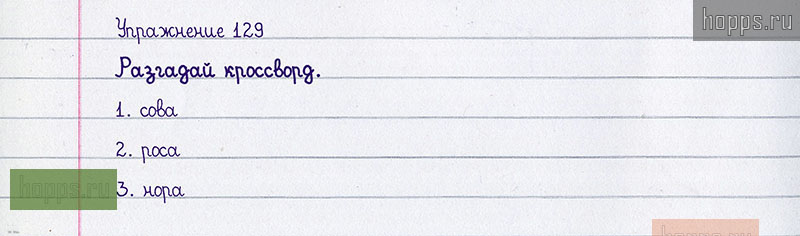 hopps.ru
Упражнение 129
Разгадай кроссворд.
1. сова
2. роса
3. нора
hopps.ru
hopps.ru